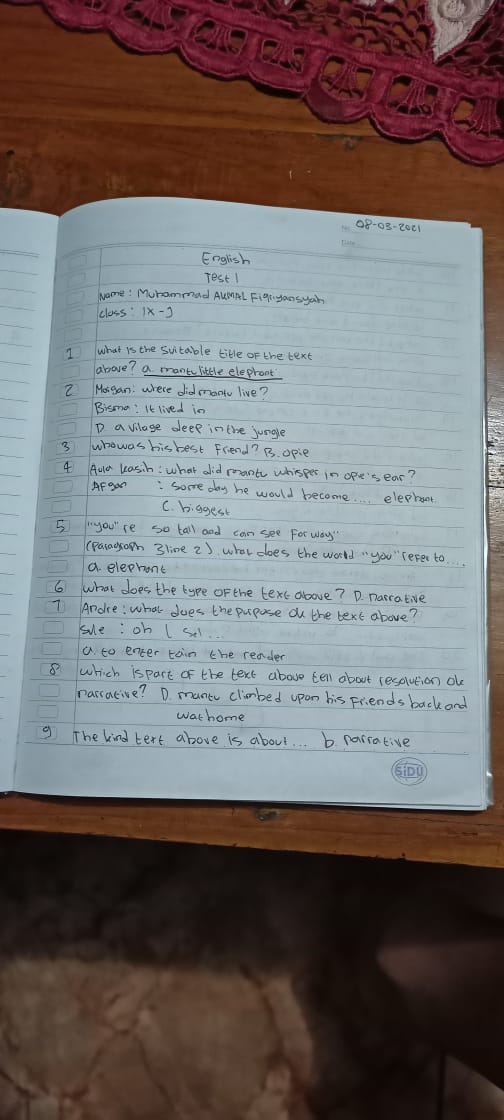 No. 08-03-2021
Date
English
Test 1
Name : Muhammad AKMAL Fiqriyansyah
class : IX - J
1 what is the suitable title of the text
above? a. mantu little elephant
2 Morgan : where did mantu live?
Bisma : It lived in
D. a vilage deep in the jungle
3 who was his best friend? B. opie
4 Aula kasih : what did mantu whisper in opie's ear?
Afgan : some day he would become .... elephant
C. biggest
5 "you"re so tall and can see far way"
(paragraph 3 line 2). what does the world "you" refer to ....
a. elephant
6 what does the type of the text above? D. narrative
7 Andre : what does the pupuse of the text above?
sule : oh ( sel ...
a. to enter tain the reader
8 which is part of the text above tell about resolution of
narrative? D. mantu climbed upon his friends back and
wat home
9 The kind text above is about ... b. narrative
SiDU